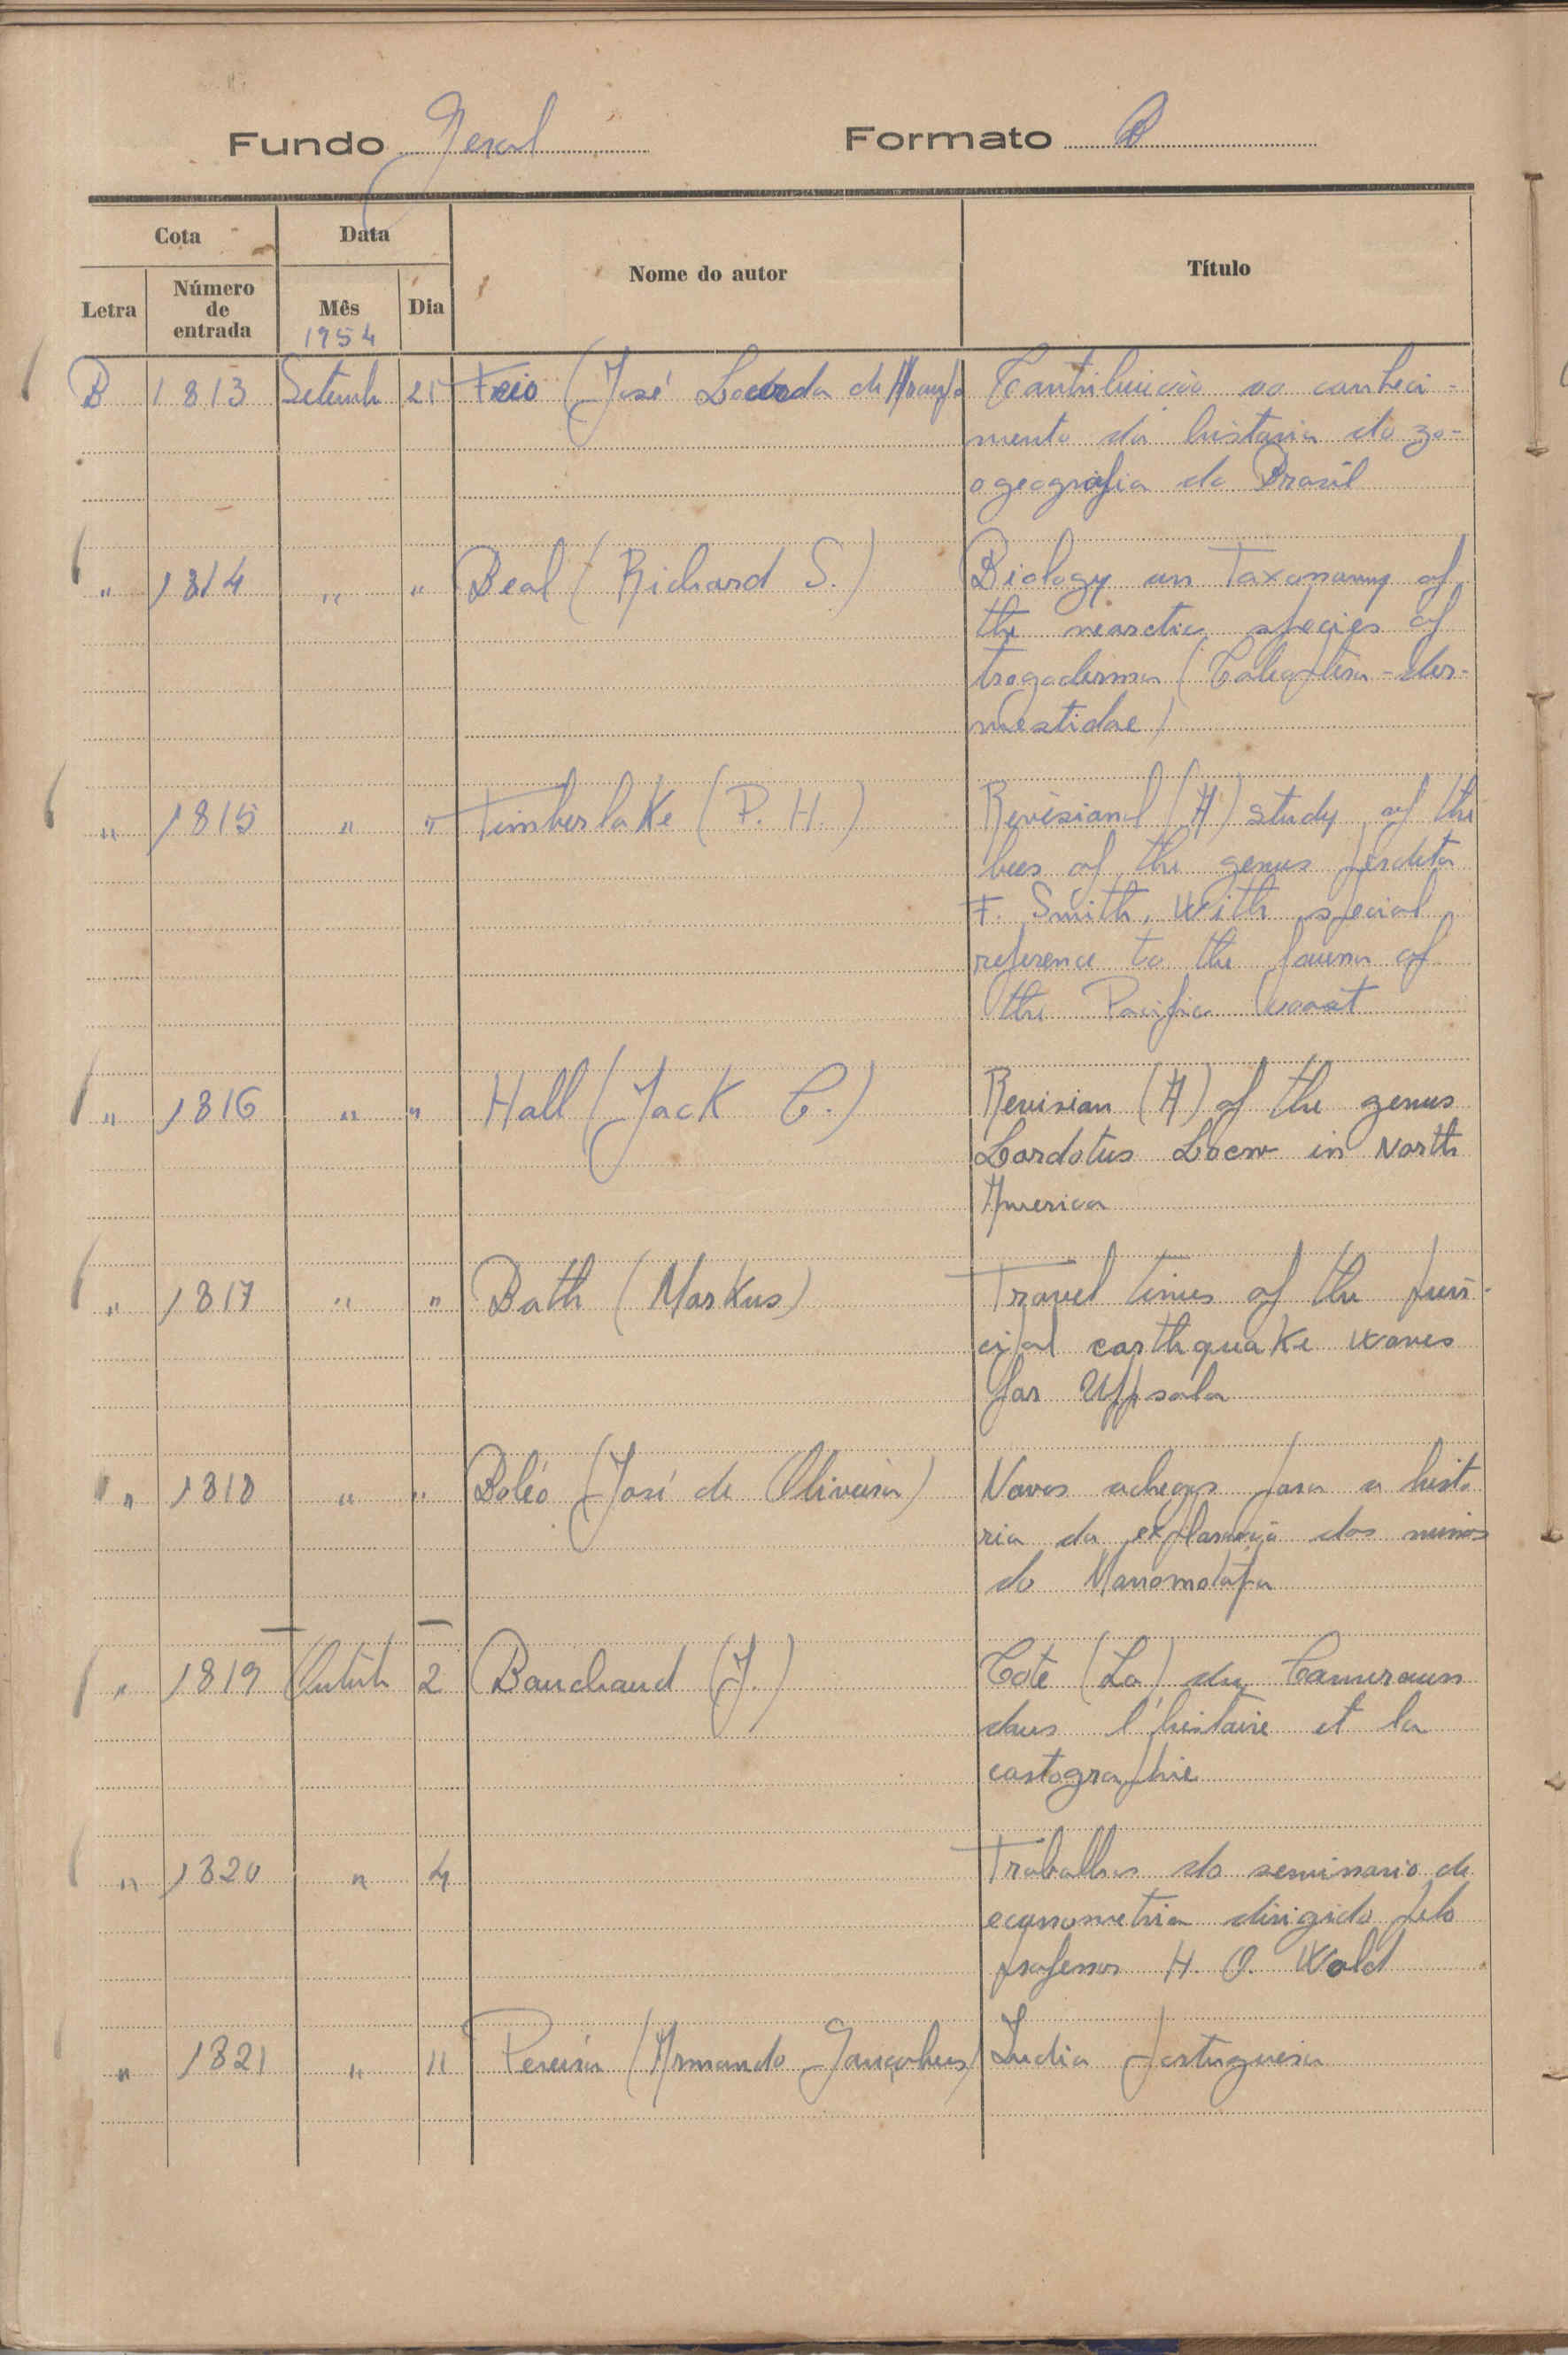 Fundo Geral Formato B
Cota Data Nome do autor Título
Letra Número de entrada Mês Dia
1954
B 1813 Setemb 25 Feio (José Lacerda de Araujo Contribuicão ao conheci-
mento da historia da zo-
ogeografia do Brasil
" 1814 " " Beal (Richard S.) Biology an Taxonomy of
the nearctic species of
trogoderma (Coleoptera-der-
mestidae)
" 1815 " " Timberlake (P. H.) Revisional (A) study of the
bees of the genus perdita
F. Smith, with special
reference to the fauna of
the Pacific coast
" 1816 " " Hall (Jack C.) Revision (A) of the genus
Lordotus Loew in North
America
" 1817 " " Bath (Markus) Travel times of the prin-
cipal earthquake waves
for Uppsala
" 1818 " " Boléo (José de Oliveira) Novas achegas para a histo
ria da exploração das minas
do Monomotapa
" 1819 Outub 2 Bouchaud (J.) Cote (La) du Cameroun
dans l'histoire et la
cartographie
" 1820 " 4 Trabalhos do seminario de
econometria dirigido pelo
professor H. O. Wold
" 1821 " 11 Pereira (Armando Gonçalves) India portuguesa